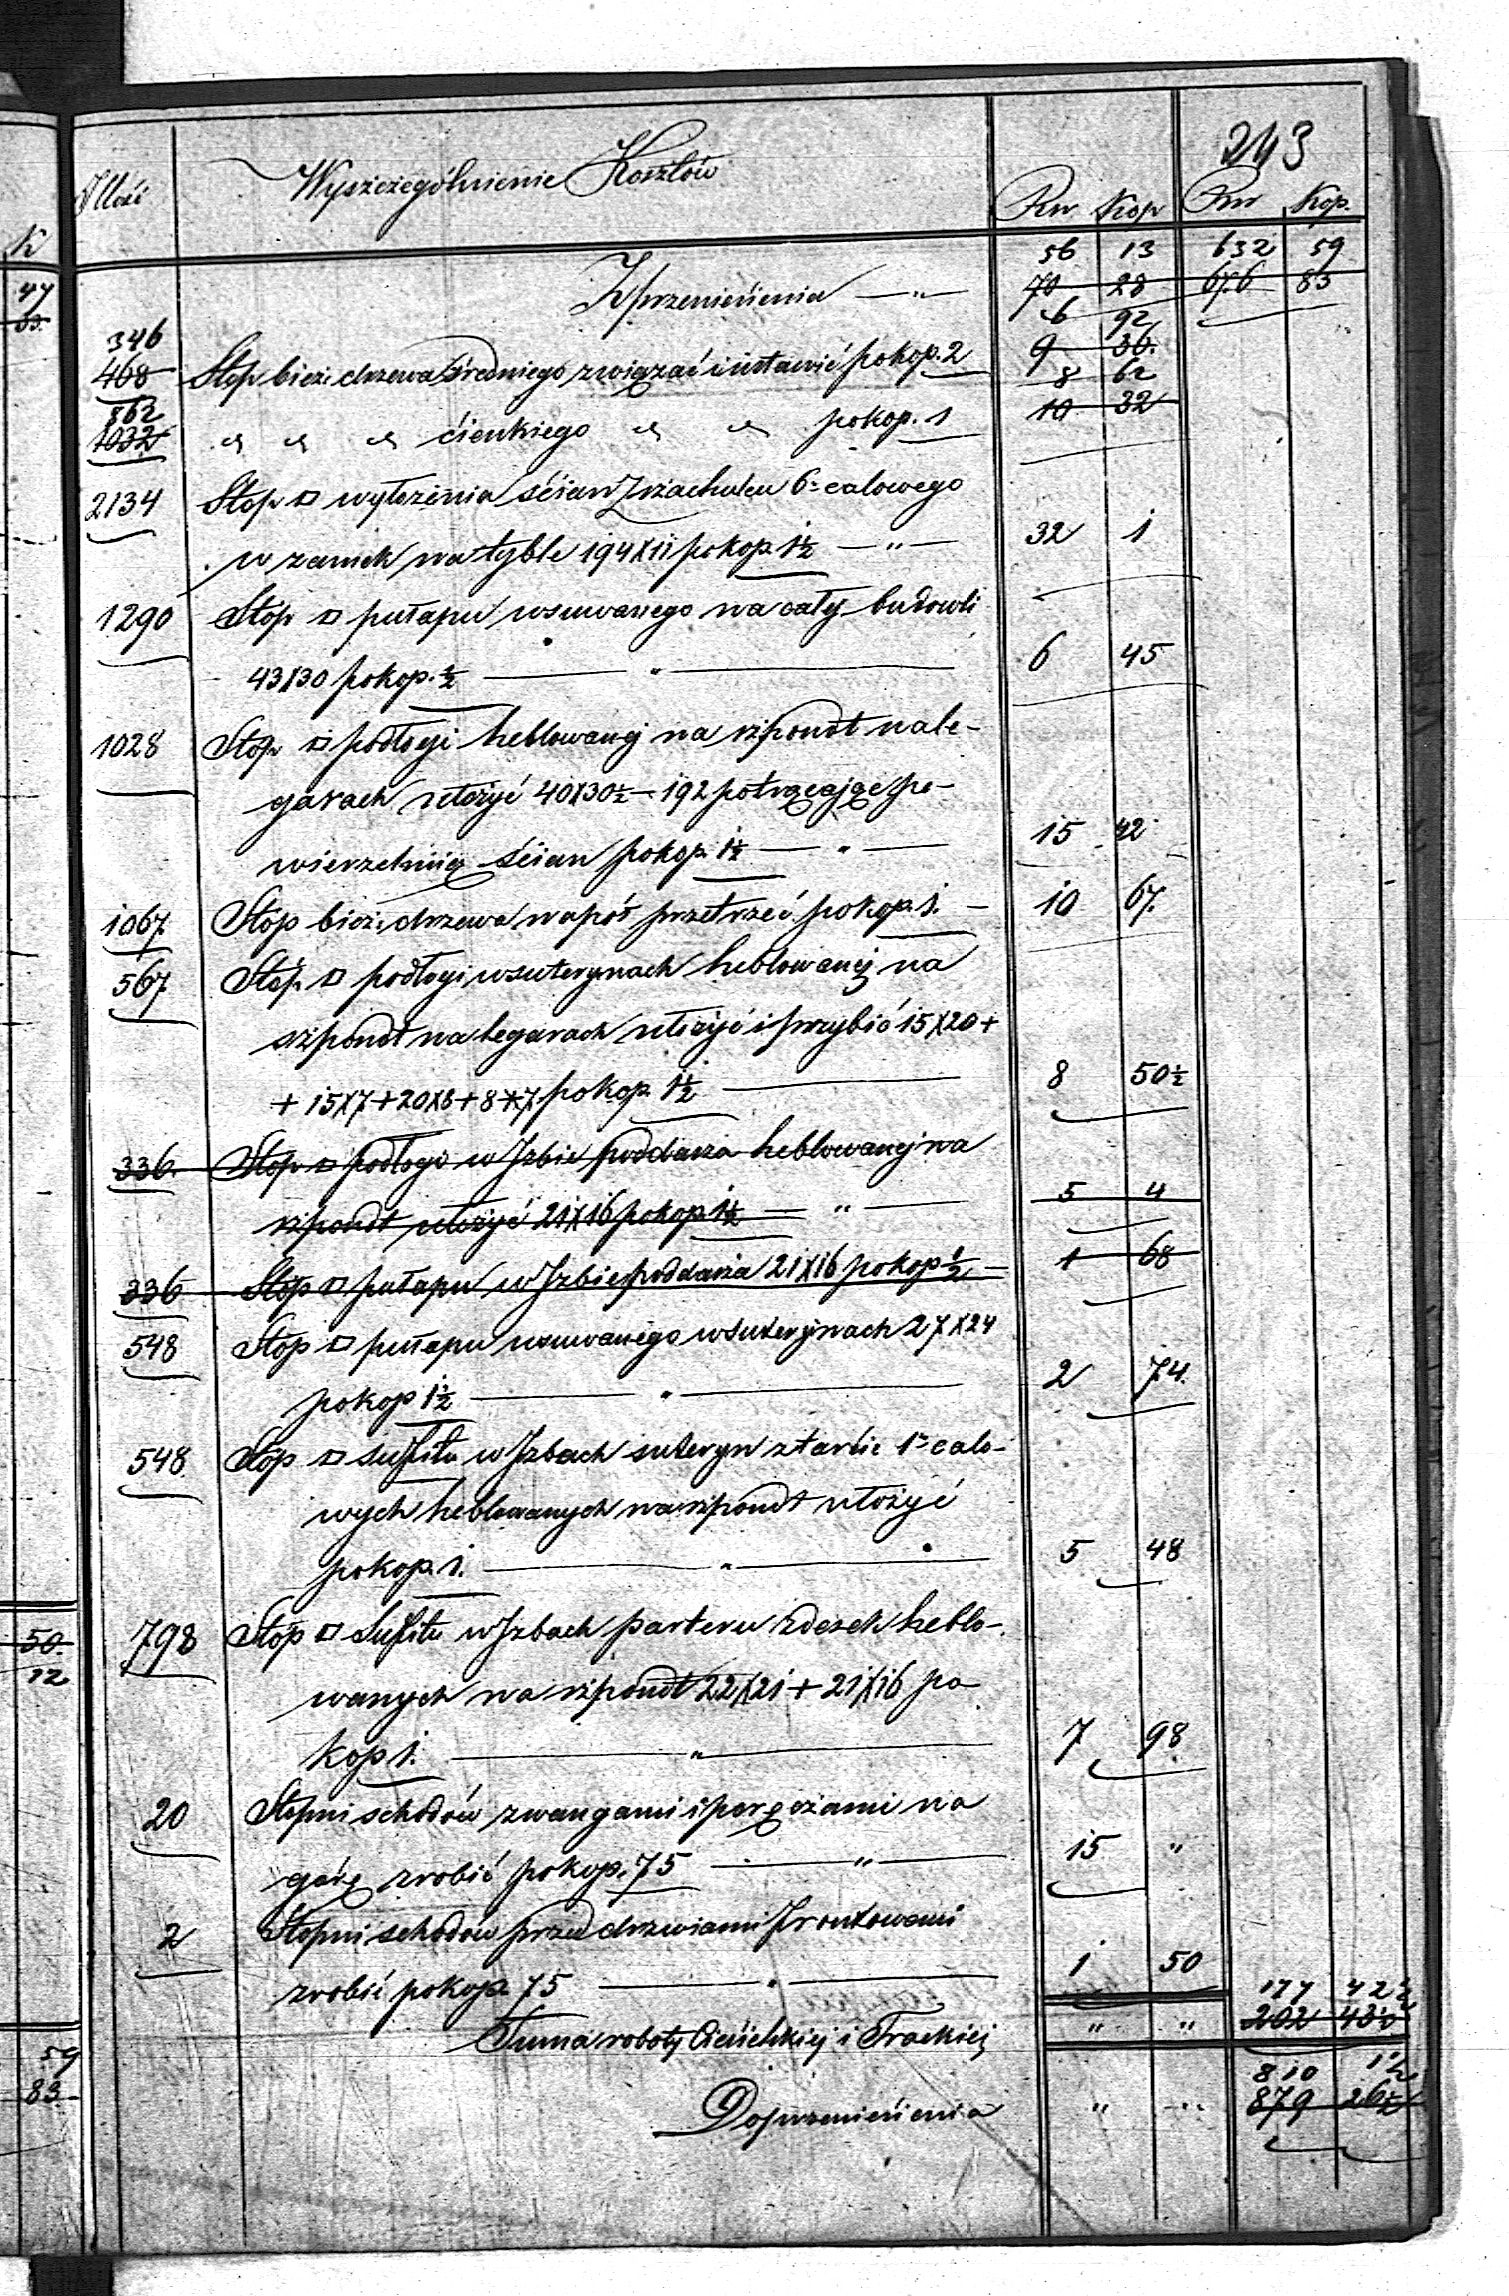 243
Ilość Wyszczególnienie Kosztów Rur Kop Rur Kop.
56 13 632 59
Z przeniesienia — „ — 70 28 676 83
346 6 92
468 Stóp bież. drzewa średniego związać i ustawić po kop. 2 9 36.
862 8 62
1032 „ „ „ cienkiego „ „ po kop. 1 10 32
2134 Stóp □ wyłożenia ścian z 6-calowego
w zamek na tyble 194X11 po kop. 1½ — „ — 32 1
1290 Stóp □ pułapu wsuwanego na całej budowli
43X30 po kop. ½ — „ — 6 45
1028 Stóp □ podłogi heblowanej na szpondt na le-
garach ułożyć 40X30½ — 192 potrącając po-
wierzchnię ścian po kop. 1½ — „ — 15 42
1067 Stóp bież. drzewa na pół przetrzeć po kop. 1. — 10 67.
567 Stóp □ podłogi w suterynach heblowanej na
szpondt na legarach ułożyć i przybić 15X20+
+15X7+20X8+8X7. po kop. 1½ — 8 50½
336. Stóp □ podłogi w Izbie poddasza heblowanej na
szpondt ułożyć 21X16 po kop. 1½ — „ — 5 4
336 Stóp □ pułapu w Izbie poddasza 21X16 po kop ½ — 1 68
548 Stóp □ pułapu wsuwanego w suterynach 27X24
po kop 1½ — „ — 2 74.
548 Stóp □ sufitu w Izbach suteryn z tarcic 1-calo-
wych heblowanych na szpondt ułożyć
po kop. 1. — „ — 5 48
798 Stóp □ sufitu w Izbach parteru z desek heblo-
wanych na szpondt 22X21+21X16 po
kop 1. — „ — 7 98
20 Stopni schodów z wangami i poręczami na
górę zrobić po kop. 75 — „ — 15 „
2 Stopni schodów przed drzwiami frontowemi
zrobić po kop. 75 — „ — 1 50
177 42½
Suma roboty Ciesielskiej i Trackiej „ „ 202 43½
810 1½
Do przeniesienia „ „ 879 26½
K
47
33.
50.
12
59
83